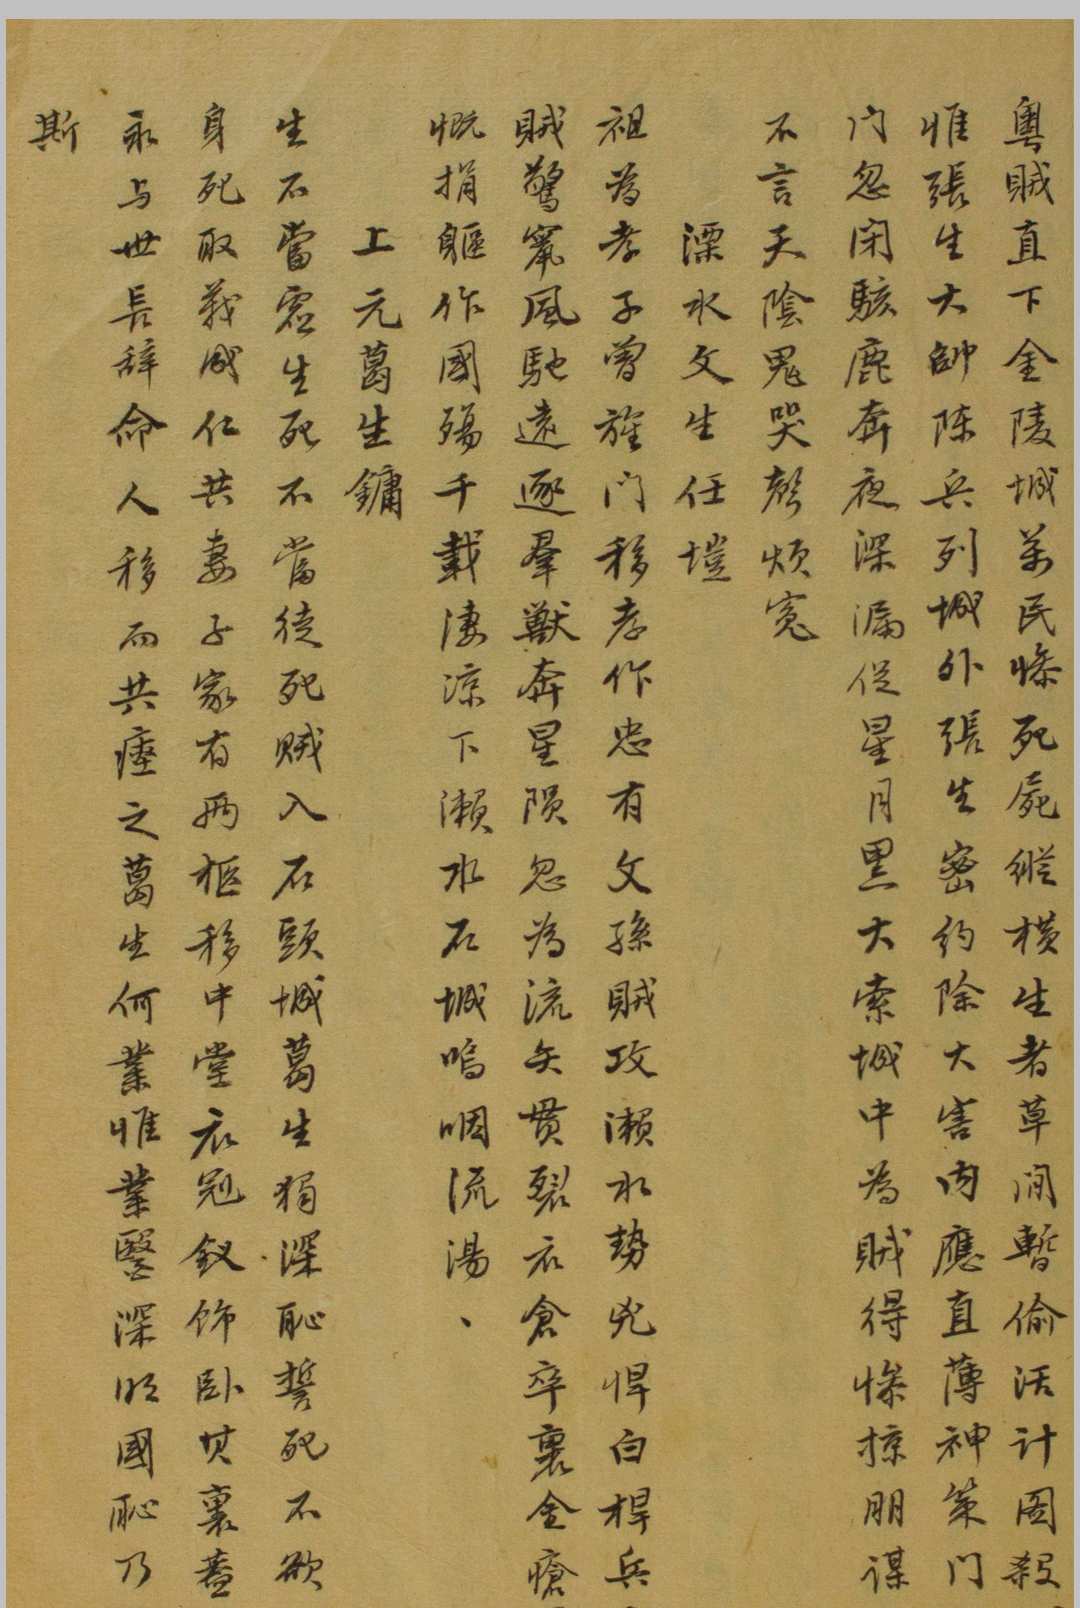 粵賊直下金陵城萬民慘死屍縱橫生者草間暫偷活計圖殺
惟張生大帥陳兵列城外張生密約除大害內應直薄神策門
門忽閉駭鹿奔夜深漏促星月黑大索城中為賊得慘掠朋謀
不言天陰鬼哭聲煩冤
溧水文生任塏
祖為孝子曾旌門移孝作忠有文孫賊攻瀨水勢兇悍白桿兵
賊驚竄風馳遠逐羣獸奔星隕忽為流矢貫裂衣倉卒裹金瘡
慨捐軀作國殤千載淒涼下瀨水石城嗚咽流湯、
上元葛生鏞
生不當虛生死不當徒死賊入石頭城葛生獨深恥誓死不欲
身死取義成仁共妻子家有兩柩移中堂衣冠釵飾臥其裏蓋
永与世長辞命人移而共瘞之葛生何業惟業醫深明國恥乃
斯